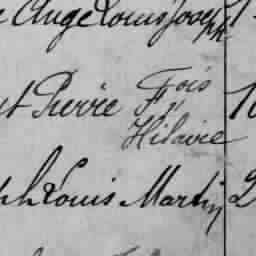 Ange Louis Joseph 1
t Pierre Fçois
Hilaire
ph Louis Martin 2